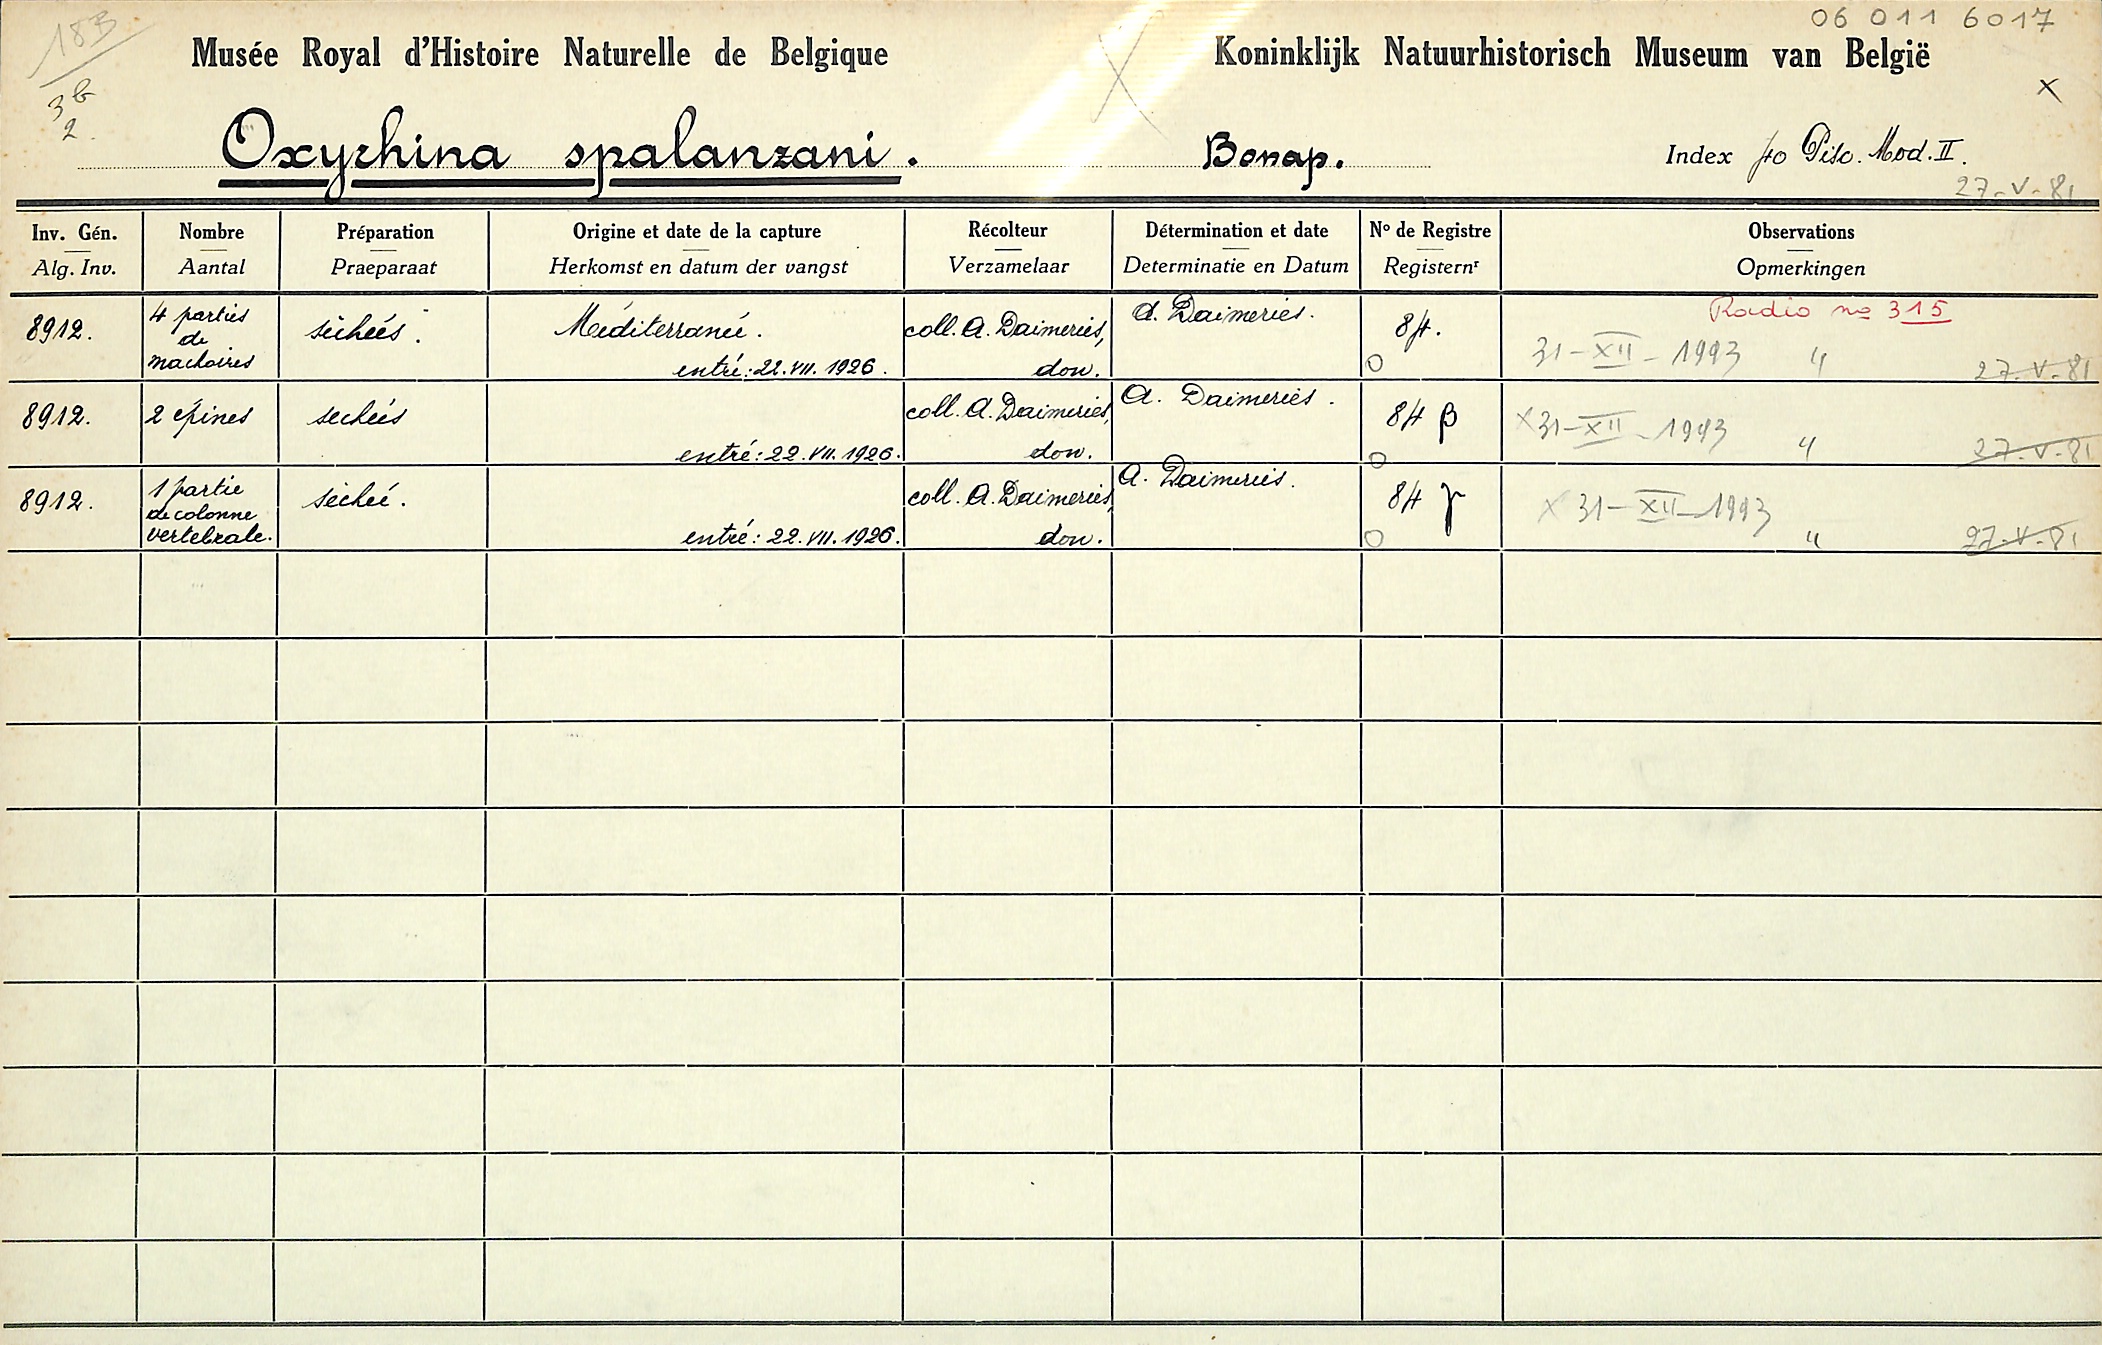 18B
06 011 6017
Musée Royal d'Histoire Naturelle de Belgique
Koninklijk Natuurhistorisch Museum van België
3b
2.
x
Oxyrhina spalanzani. Bonap. Index fo Pisc. Mod. II.
27-V-81
Inv. Gén. Nombre Préparation Origine et date de la capture Récolteur Détermination et date No de Registre Observations
Alg. Inv. Aantal Praeparaat Herkomst en datum der vangst Verzamelaar Determinatie en Datum Registernr Opmerkingen
Radio no 315
8912. 4 parties de machoires séchées. Méditerranée. coll. A. Daimeries, A. Daimeries. 84. 31-XII-1993 "
entré: 22.VII.1926. don. 27-V-81
8912. 2 épines sechées coll. A. Daimeries, A. Daimeries. 84 β x 31-XII-1993 "
entré: 22.VII.1926. don. 27-V-81
8912. 1 partie de colonne vertebrale. séchée. coll. A. Daimeries, A. Daimeries. 84 γ x 31-XII-1993 "
entré: 22.VII.1926. don. 27-V-81